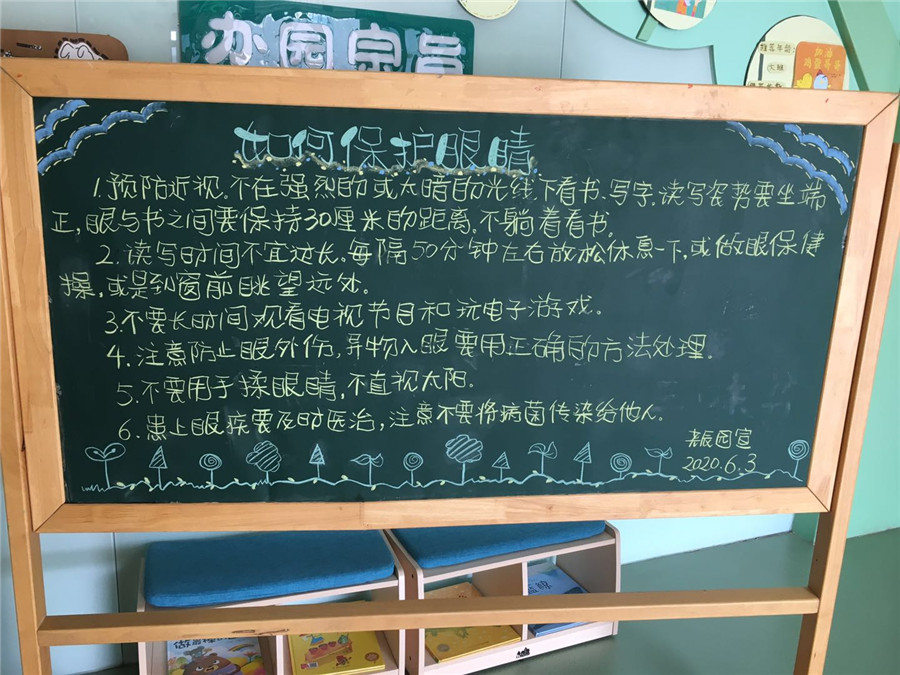 办园宗旨
如何保护眼睛
1.预防近视。不在强烈的或太暗的光线下看书、写字.读写姿势要坐端
正,眼与书之间要保持30厘米的距离。不躺着看书。
2.读写时间不宜过长。每隔50分钟左右放松休息一下,或做眼保健
操,或是到窗前眺望远处。
3.不要长时间观看电视节目和玩电子游戏。
4.注意防止眼外伤,异物入眼要用正确的方法处理.
5.不要用手揉眼睛,不直视太阳。
6.患上眼疾要及时医治,注意不要将病菌传染给他人。
2020.6.3